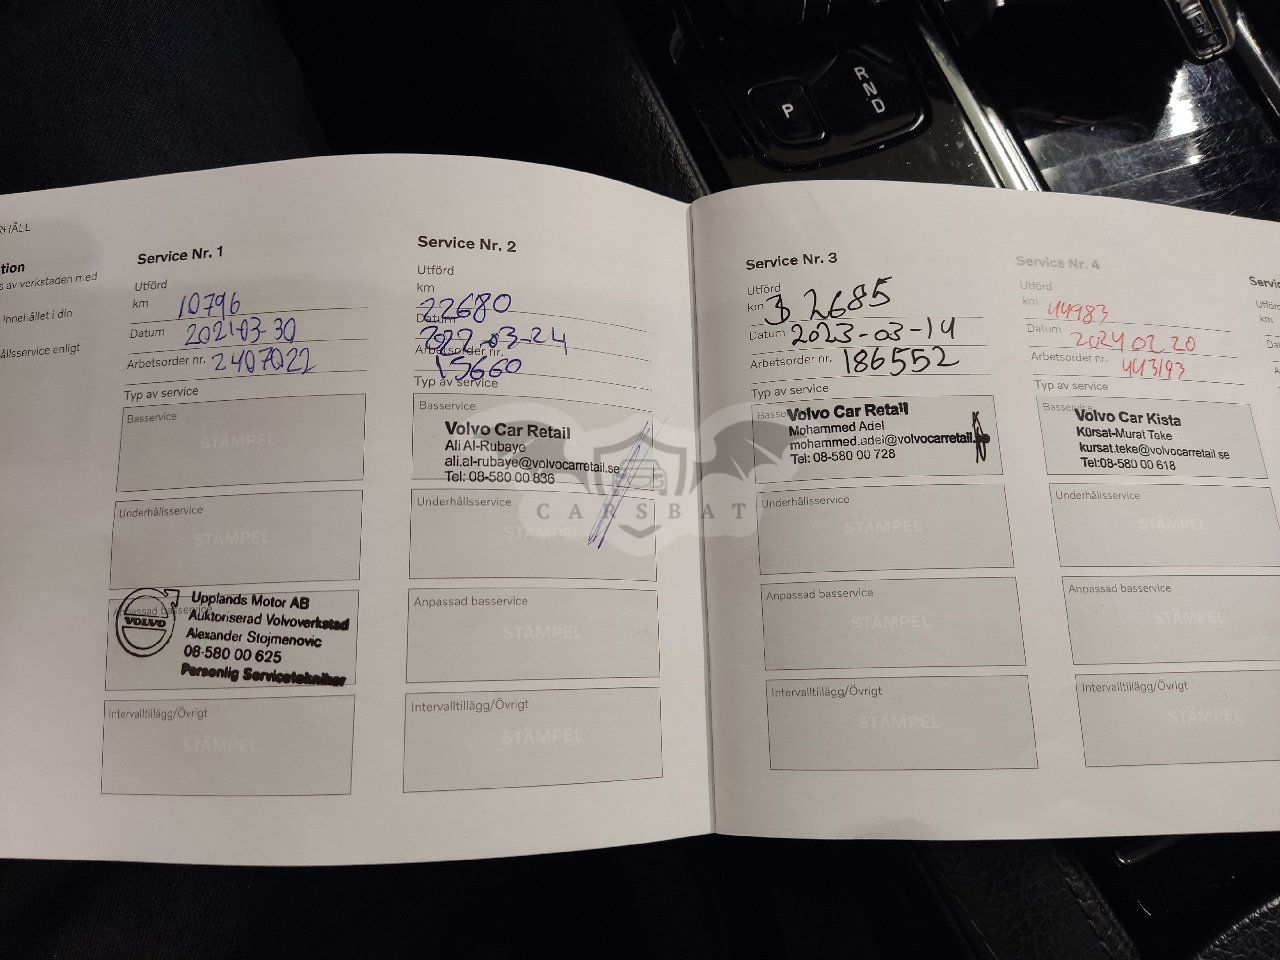 RHÅLL
tion
s av verkstaden med
innehållet i din
ållsservice enligt
Service Nr. 1
Utförd
km 10796
Datum 2021-03-30
Arbetsorder nr. 2407022
Typ av service
Basservice
STÄMPEL
Underhållsservice
STÄMPEL
Anpassad basservice
VOLVO
Upplands Motor AB
Auktoriserad Volvoverkstad
Alexander Stojmenovic
08-580 00 625
Personlig Servicetekniker
Intervalltillägg/Övrigt
STÄMPEL
Service Nr. 2
Utförd
km 22680
Datum 2022-03-24
Arbetsorder nr. 15660
Typ av service
Basservice
Volvo Car Retail
Ali Al-Rubaye
ali.al-rubaye@volvocarretail.se
Tel: 08-580 00 836
Underhållsservice
STÄMPEL
Anpassad basservice
STÄMPEL
Intervalltillägg/Övrigt
STÄMPEL
CARSBAT
P
R
N
D
Service Nr. 3
Utförd
km 32685
Datum 2023-03-14
Arbetsorder nr. 186552
Typ av service
Volvo Car Retail
Mohammed Adel
mohammed.adel@volvocarretail.se
Tel: 08-580 00 728
Underhållsservice
STÄMPEL
Anpassad basservice
STÄMPEL
Intervalltillägg/Övrigt
STÄMPEL
Service Nr. 4
Utförd
km 44983
Datum 2024 02 20
Arbetsorder nr. 443193
Typ av service
Basservice
Volvo Car Kista
Kürsat-Murat Teke
kursat.teke@volvocarretail.se
Tel:08-580 00 618
Underhållsservice
STÄMPEL
Anpassad basservice
STÄMPEL
Intervalltillägg/Övrigt
STÄMPEL
Servic